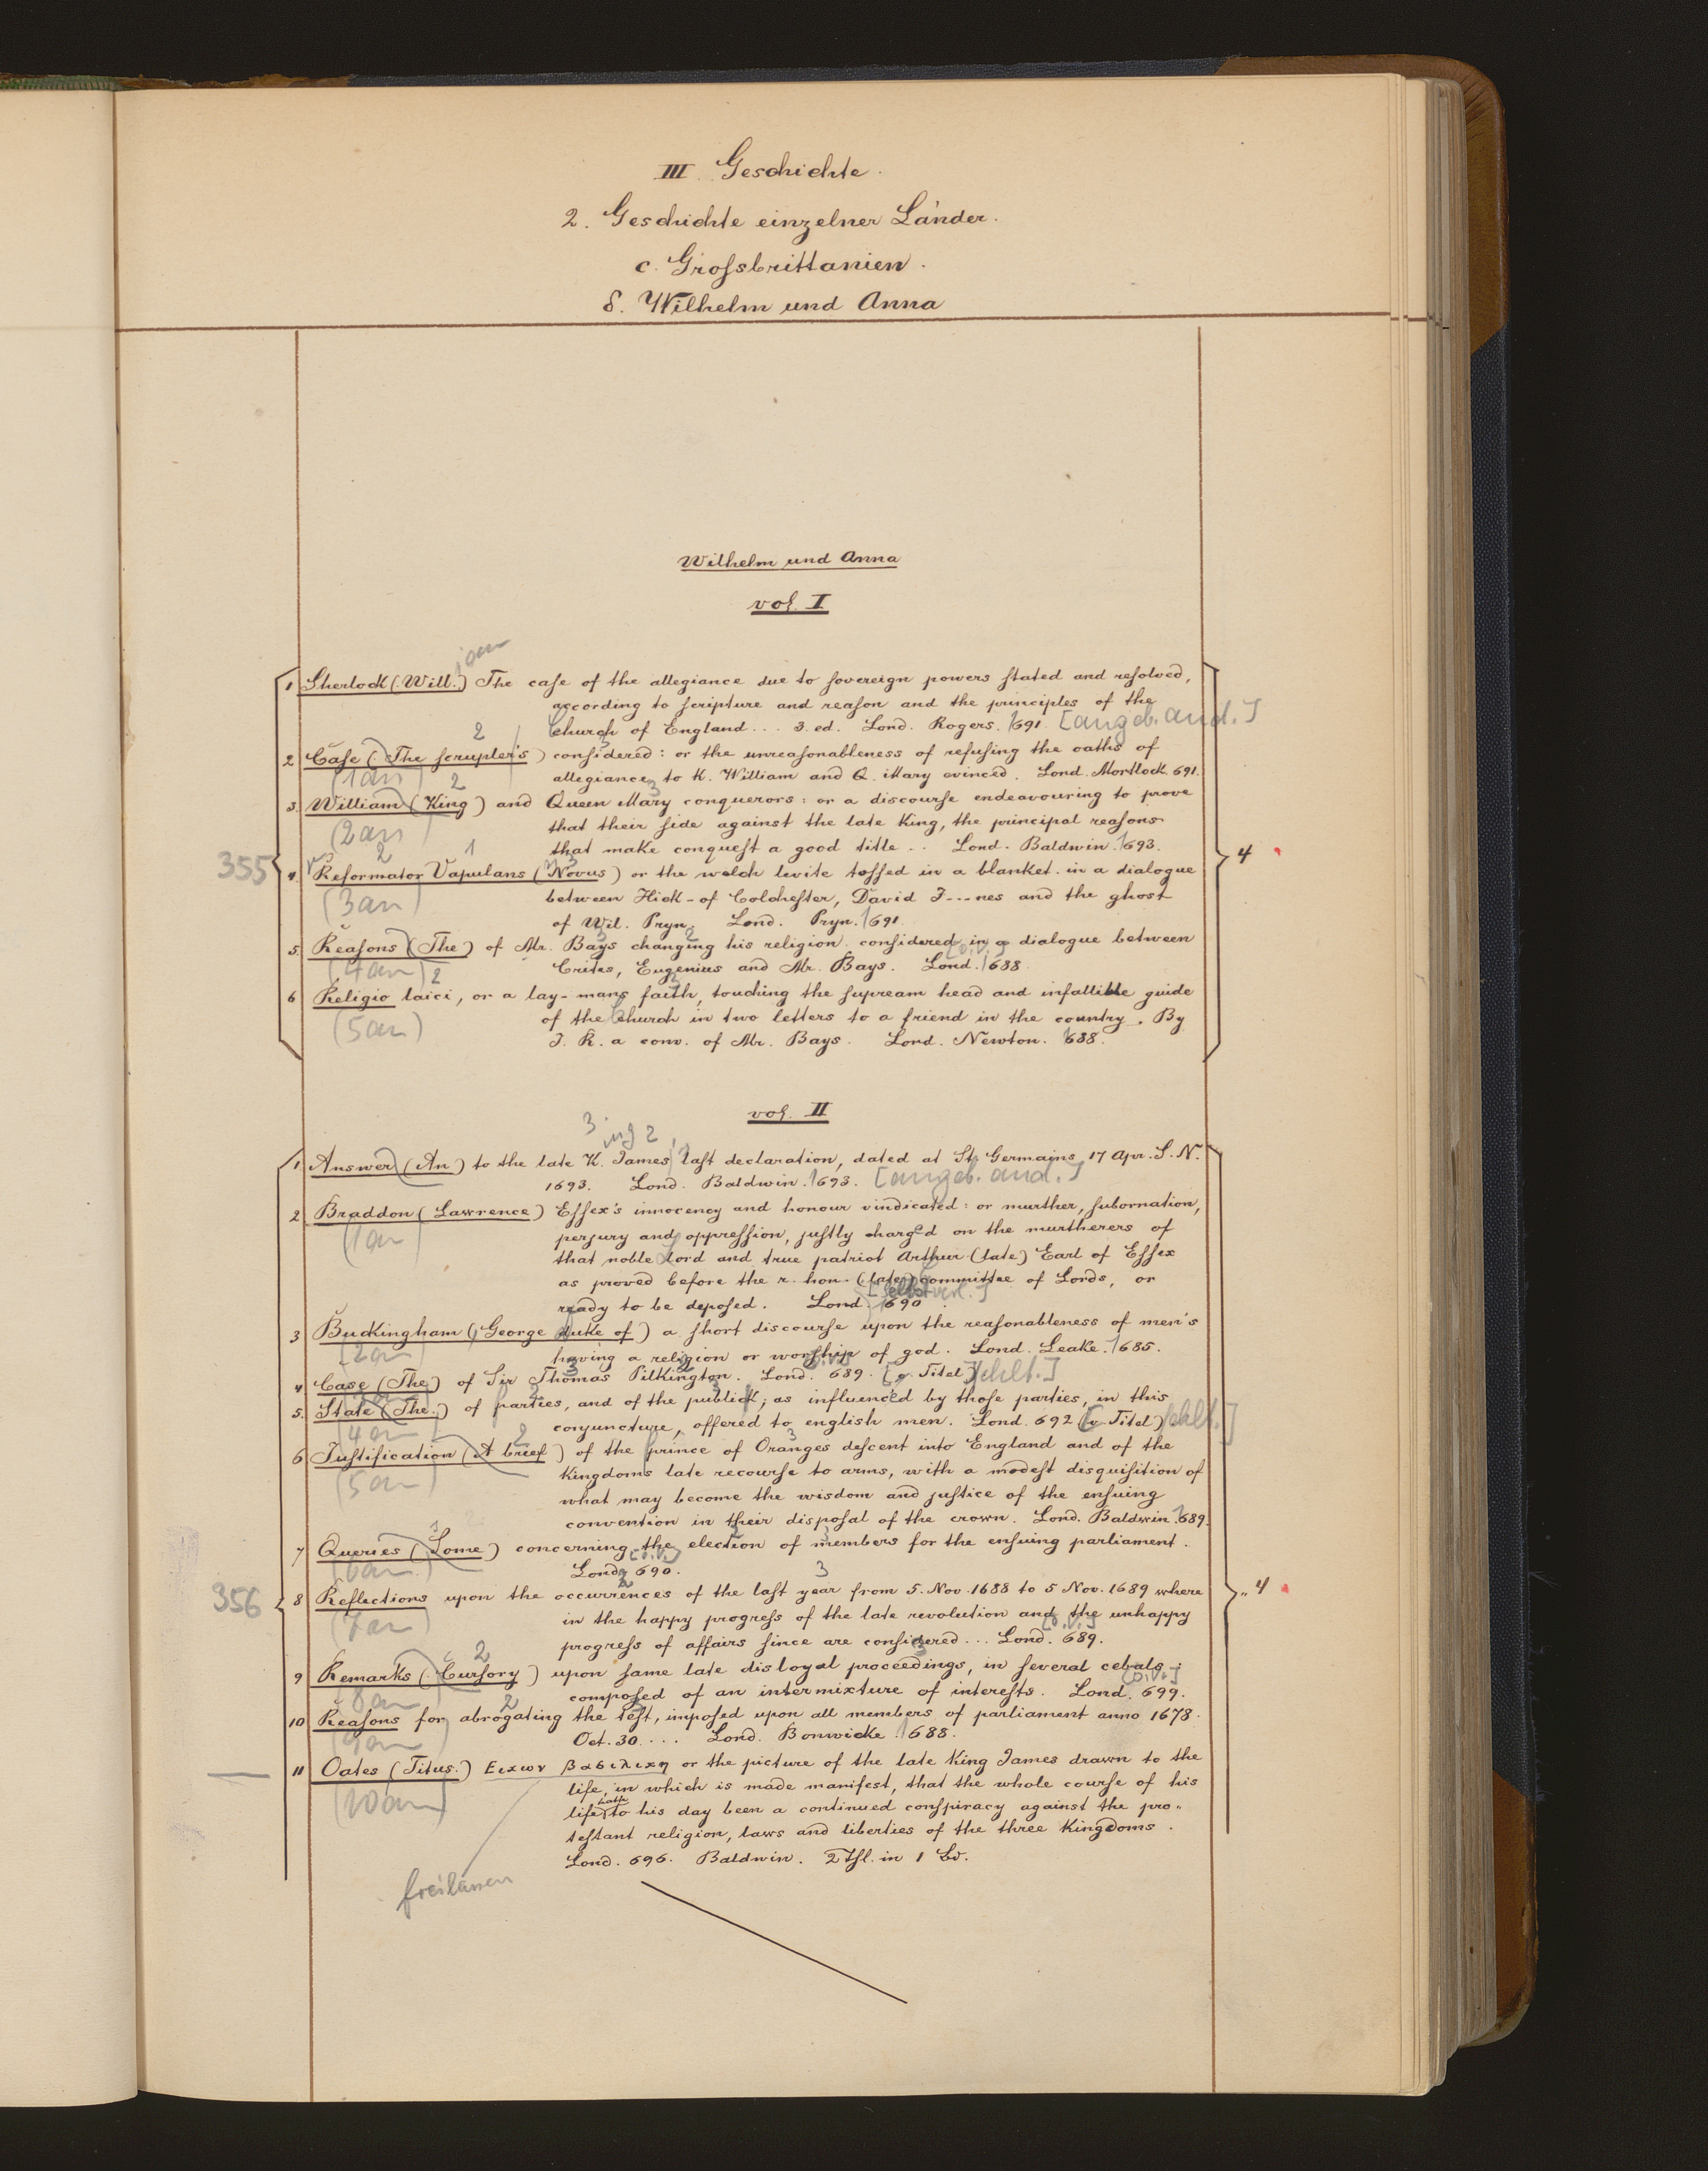 III Geschichte.
2. Geschichte einzelner Länder.
c. Großbrittanien.
δ. Wilhelm und Anna
Wilhelm und Anna
vol. I
1 Sherlock (Will.) The case of the allegiance due to sovereign powers stated and resolved,
according to scripture and reason and the principles of the
church of England ... 3. ed. Lond. Rogers. 1691. [angeb. and.]
2 Case (The scrupler's) considered: or the unreasonableness of refusing the oaths of
(1an)
allegiance to K. William and Q. Mary evinced. Lond. Mortlock. 691.
3. William (King) and Queen Mary conquerors: or a discourse endeavouring to prove
(2an)
that their side against the late King, the principal reasons
that make conquest a good title .. Lond. Baldwin. 1693.
355
4
4. Reformator Vapulans (Novus) or the welch levite tossed in a blanket. in a dialogue
(3an)
between Hick- of Colchester, David J---nes and the ghost
of Wil. Pryn. Lond. Pryn. 1691
5. Reasons (The) of Mr. Bays changing his religion. considered in a dialogue between
(4an)
Crites, Eugenius and Mr. Bays. Lond. 1688.
6 Religio laici, or a lay-mans faith, touching the supream head and infallible guide
(5an)
of the church in two letters to a friend in the country. By
J. R. a conv. of Mr. Bays. Lond. Newton. 1688.
vol. II
1 Answer (An) to the late K. James last declaration, dated at St. Germains, 17 Apr. S. N.
1693. Lond. Baldwin. 1693. [angeb. and.]
2 Braddon (Lawrence) Essex's innocency and honour vindicated: or murther, subornation,
(1an)
perjury and oppression, justly charged on the murtherers of
that noble lord and true patriot Arthur (late) Earl of Essex
as proved before the r. hon. (late) committee of Lords, or
ready to be deposed. Lond. 1690. [Selbstverl.]
3 Buckingham (George duke of) a short discourse upon the reasonableness of men's
(2an)
having a religion or worship of god. Lond. Leake. 1685.
4 Case (The) of Sir Thomas Pilkington. Lond. 689. [v. Titel fehlt.]
5. State (The.) of parties, and of the publick, as influenced by those parties, in this
(4an)
conjuncture, offered to english men. Lond. 692 (v. Titel) fehlt.]
6 Justification (A brief) of the prince of Oranges descent into England and of the
(5an)
Kingdoms late recourse to arms, with a modest disquisition of
what may become the wisdom and justice of the ensuing
convention in their disposal of the crown. Lond. Baldwin. 1689.
7 Queries (Some) concerning the election of members for the ensuing parliament.
(6an)
Lond. 690.
356
4
8 Reflections upon the occurrences of the last year from 5. Nov. 1688 to 5 Nov. 1689 where
(7an)
in the happy progress of the late revolution and the unhappy
progress of affairs since are considered ... Lond. 689.
9 Remarks (Cursory) upon some late disloyal proceedings, in several cabals;
(8an)
composed of an intermixture of interests. Lond. 699.
10 Reasons for abrogating the test, imposed upon all members of parliament anno 1678.
(9an)
Oct. 30. ... Lond. Bonwicke. 1688.
11 Oates (Titus.) Εικων βασιλικη or the picture of the late King James drawn to the
(10an)
life, in which is made manifest, that the whole course of his
life hath to his day been a continued conspiracy against the pro-
testant religion, laws and liberties of the three Kingdoms.
Lond. 696. Baldwin. 2 Thl. in 1 Bd.
freilassen